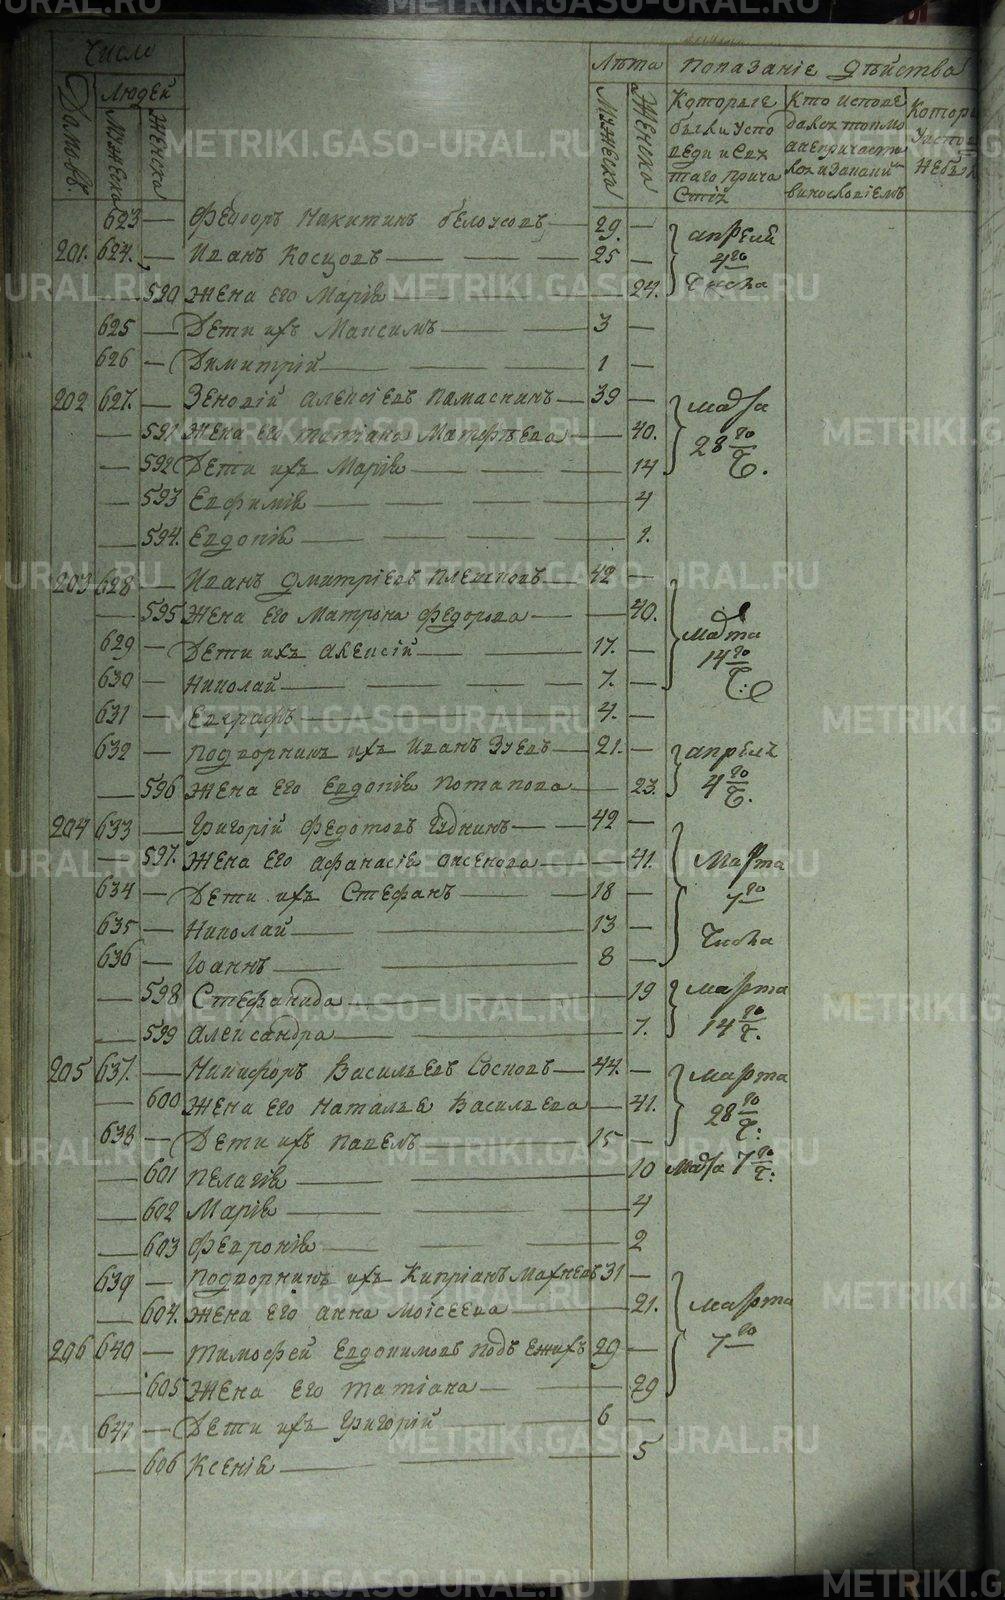 Число
Лѣта
Показанїе Дѣйства
Домовъ.
Людей
Мужеска
Женска
Мужеска
Женска
Которые
были у испо
вѣди и свя
таго прича
стія
Кто испове
623 — Феодоръ Никитинъ Белоусовъ — 29. —
апреля
4го
числа
201. 624. — Иванъ Косцовъ — 25 —
— 590 Жена его Марія — 24.
625 — Дети ихъ Максимъ — 3 —
626 — Димитрій — 1 —
202 627. — Зеновій Алексіевъ — 39 —
марта
28го
ч.
— 591 Жена его Татіана Матфѣева — 40.
— 592 Дети ихъ Марія — 14
— 593 Евфимія — 4
— 594. Евдокія — 1.
203 628 — Иванъ Дмитріевъ Плешковъ — 42 —
— 595 Жена его Матрона Федорова — 40.
марта
14го
ч.
629 — Дети ихъ Алексій — 17. —
630 — Николай — 7. —
631 — Евграфъ — 4. —
632 — Подворникъ ихъ Иванъ Зуевъ — 21. —
апреля
4го
ч.
— 596 Жена его Евдокія Потапова — 23.
204 633 — Григорій Федотовъ — 42 —
— 597. Жена его Афанасія Аксенова — 41.
марта
7го
числа
634 — Дети ихъ Стефанъ — 18 —
635 — Николай — 13 —
636 — Іоаннъ — 8 —
— 598 Стефанида — 19
марта
14го
ч.
— 599 Александра — 7.
205 637. — Никифоръ Васильевъ Сосновъ — 44. —
марта
28го
ч.
— 600 Жена его Наталья Васильева — 41.
638 — Дети ихъ Павелъ — 15 —
— 601 Пелагія — 10 марта 7го ч.
— 602 Марія — 4
— 603 Февронія — 2
639 — Подворникъ ихъ Кипріанъ Махневъ 31 —
— 604. Жена его Анна Моісеева — 21.
марта
7го
206 640 — Тимофей Евдокимовъ — 29 —
— 605 Жена его Татіана — 29
641 — Дети ихъ Григорій — 6 —
— 606 Ксенія — 5
METRIKI.GASO-URAL.RU